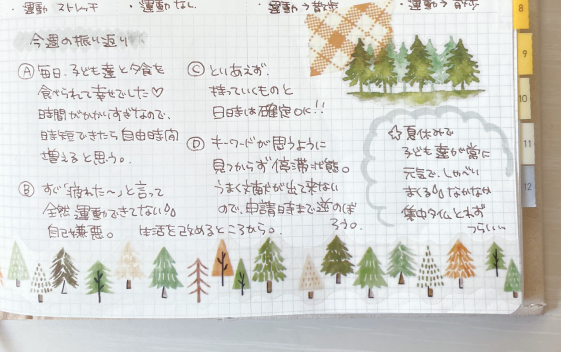 ・運動 ストレッチ
・運動 なし
・運動 う 散歩
・運動 う 散歩
今週の振り返り
Ⓐ 毎日、子ども達と夕食を
食べられて幸せでした♡
時間がかかりすぎなので、
時短できたら自由時間
増えると思う。
Ⓑ すぐ「疲れた〜」と言って
全然運動できてない
自己嫌悪。 生活を改めるところから。
Ⓒ とりあえず、
持っていくものと
日時は確定OK!!
Ⓓ キーワードが思うように
見つからず停滞状態。
うまく文献が出て来ない
ので、申請時まで遡のぼ
ろう。
☆夏休みで
子ども達が常に
元気で、しゃべり
まくる なかなか
集中タイムとれず
つらい…
8
9
10
11
12